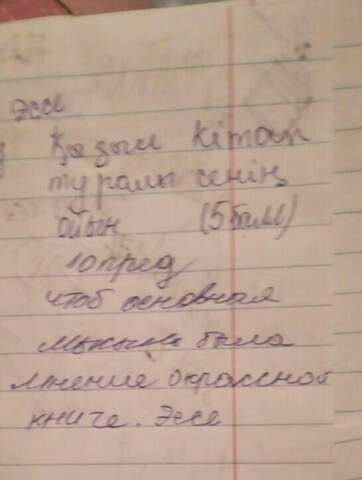 Эссе
Қызыл кітап
туралы сенің
ойың (5балл)
10пред
чтоб основная
была
мнение окрасной
книге. Эссе